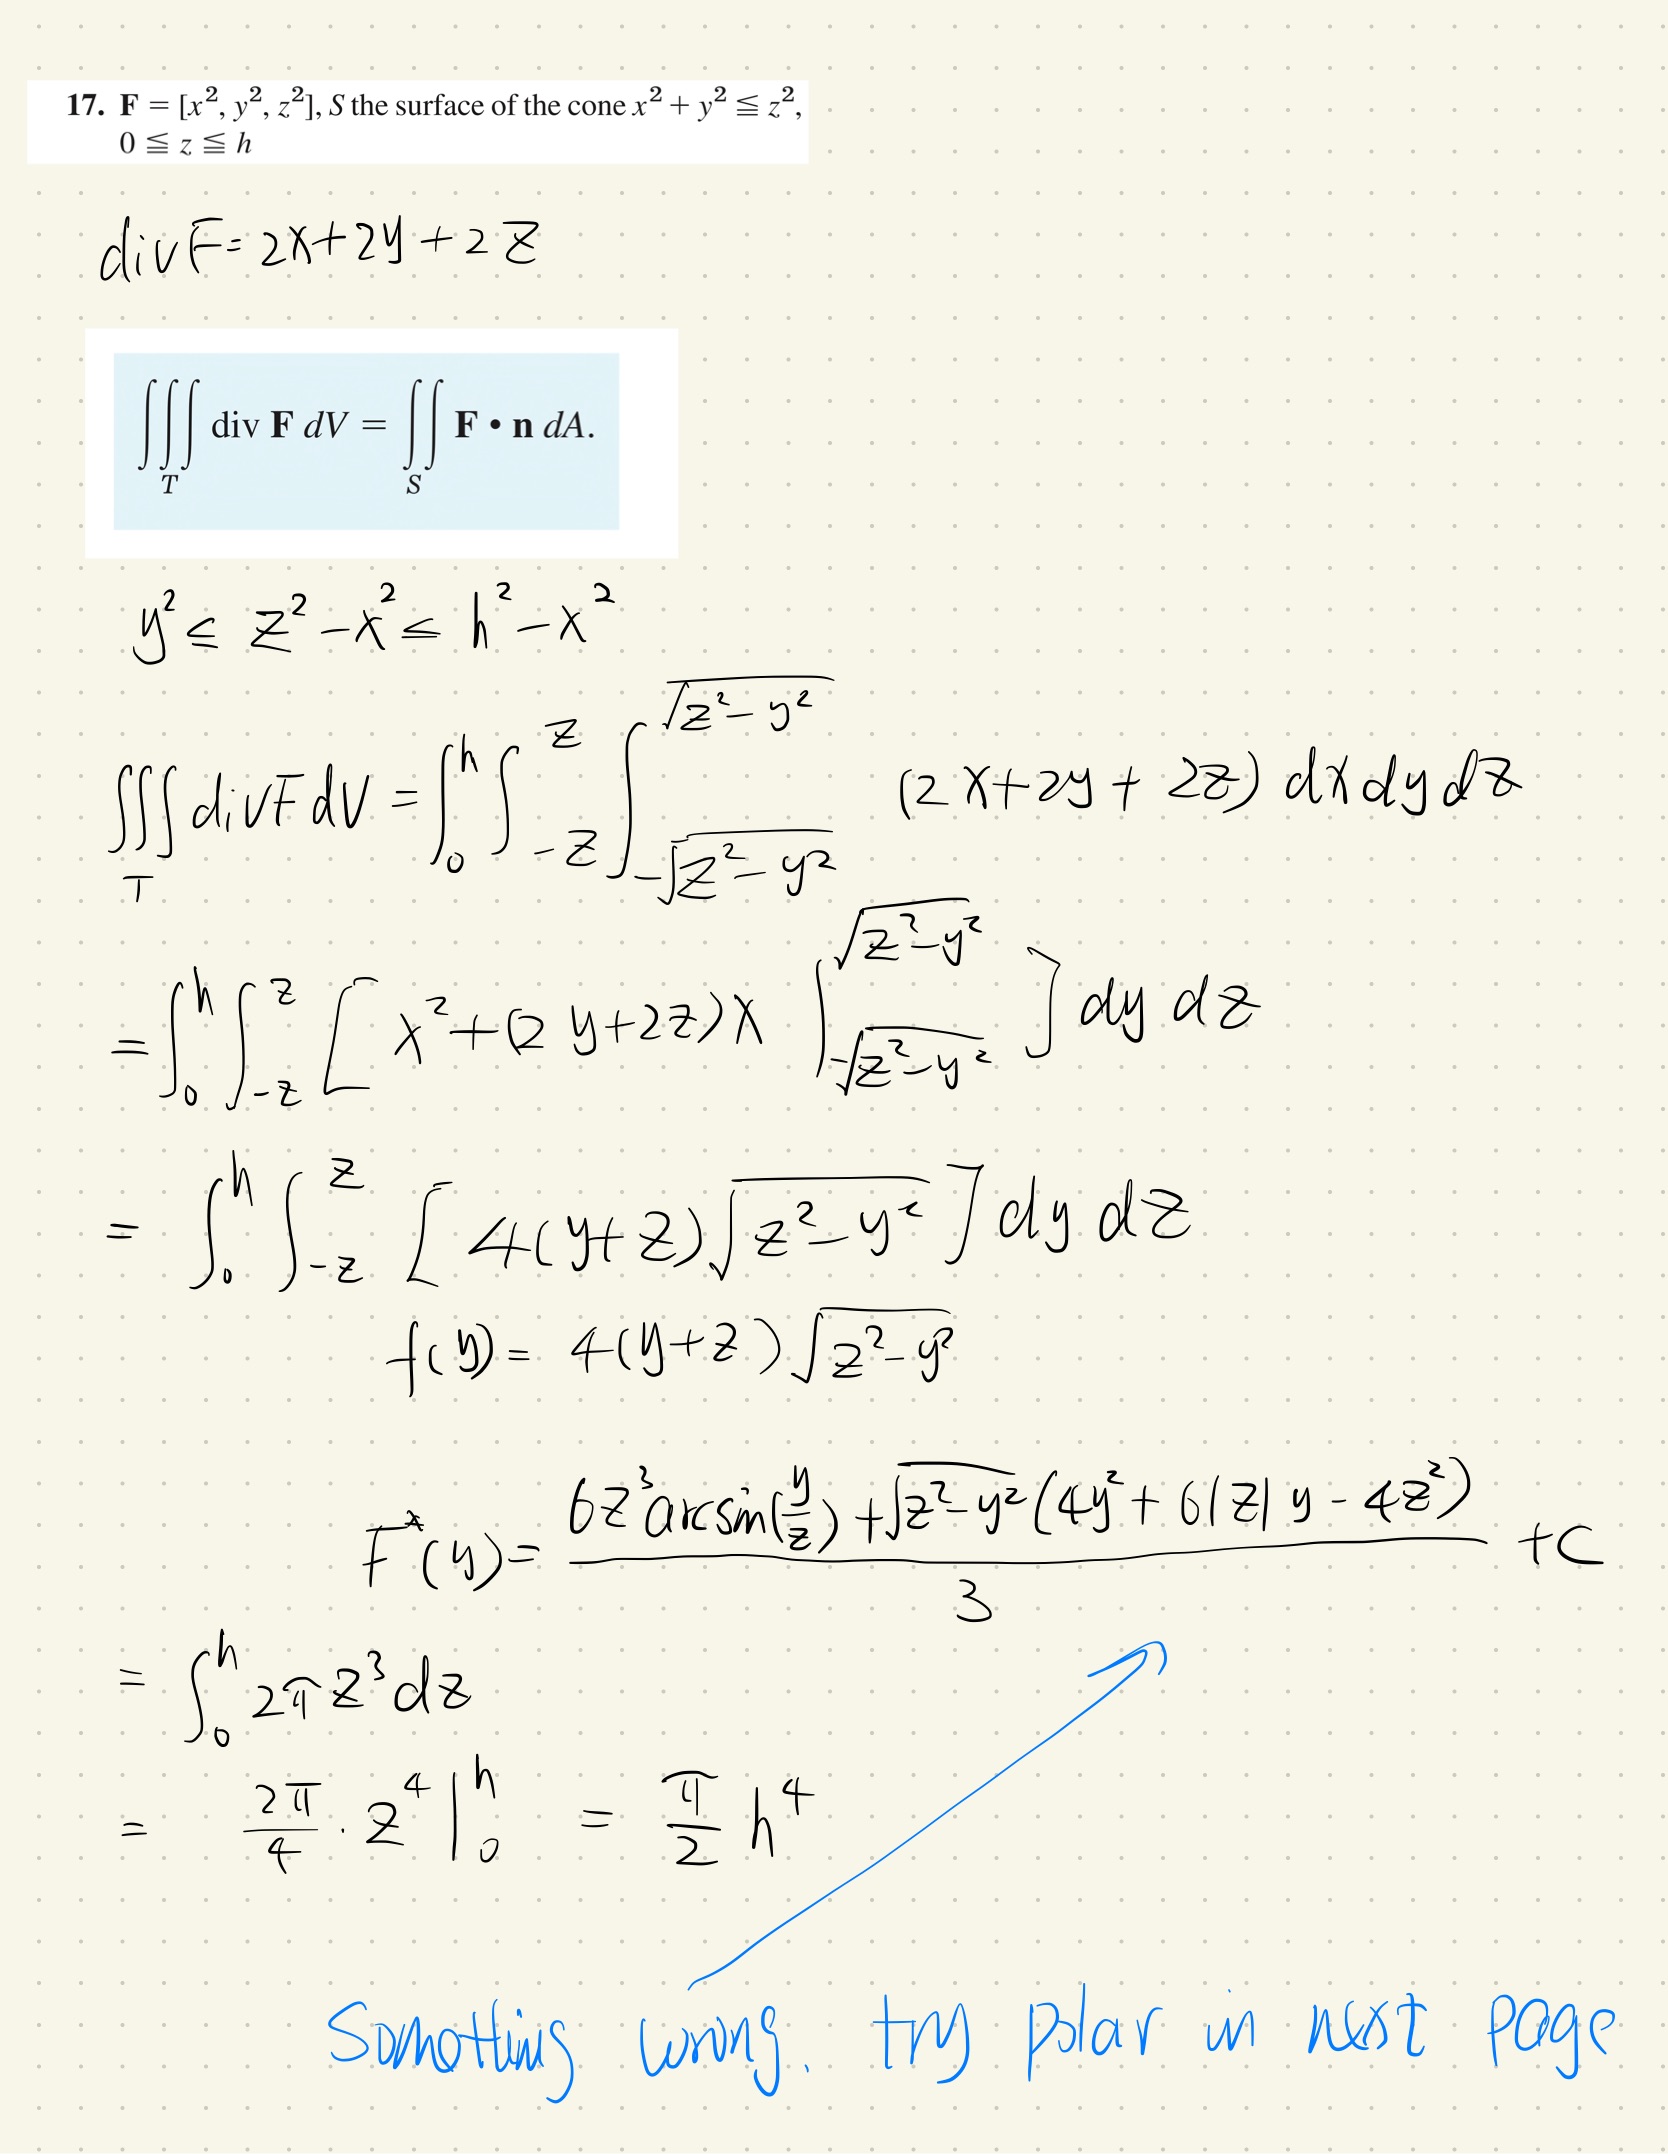 17. F = [x², y², z²], S the surface of the cone x² + y² ≦ z²,
0 ≦ z ≦ h
div F = 2x+2y+2z
∭_T div F dV = ∬_S F • n dA.
y² ≤ z² − x² ≤ h² − x²
∭_T div F dV = ∫_0^h ∫_{-z}^{z} ∫_{-√(z²−y²)}^{√(z²−y²)} (2x+2y+2z) dx dy dz
= ∫_0^h ∫_{-z}^{z} [ x²+(2y+2z)x |_{-√(z²−y²)}^{√(z²−y²)} ] dy dz
= ∫_0^h ∫_{-z}^{z} [ 4(y+z)√(z²−y²) ] dy dz
f(y) = 4(y+z)√(z²−y²)
F*(y) = (6z³arcsin(y/z) + √(z²−y²)(4y²+6|z|y − 4z²))/3 + C
= ∫_0^h 2πz³ dz
= 2π/4 · z⁴ |_0^h = π/2 h⁴
Something wrong. try polar in next page